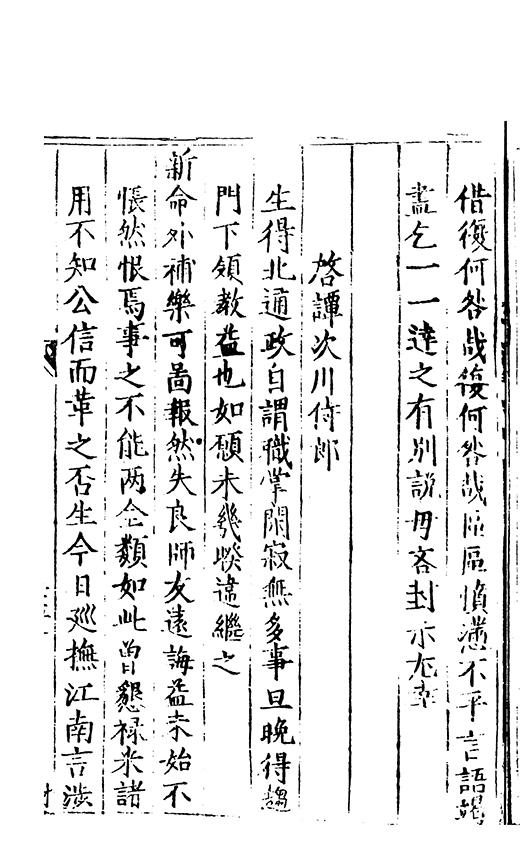 借復何咎哉復何咎哉區區憤懣不平言語竭
盡乞一一達之有別說毋吝封示尤幸
啓譚次川侍郎
生得北通政自謂職掌閑寂無多事旦晚得趨
門下領教益也如願未幾暌違繼之
新命外補樂可啚報然失良師友遠誨益未始不
悵然恨焉事之不能两全類如此曾懇禄米諸
用不知公信而革之否生今日廵撫江南言涉